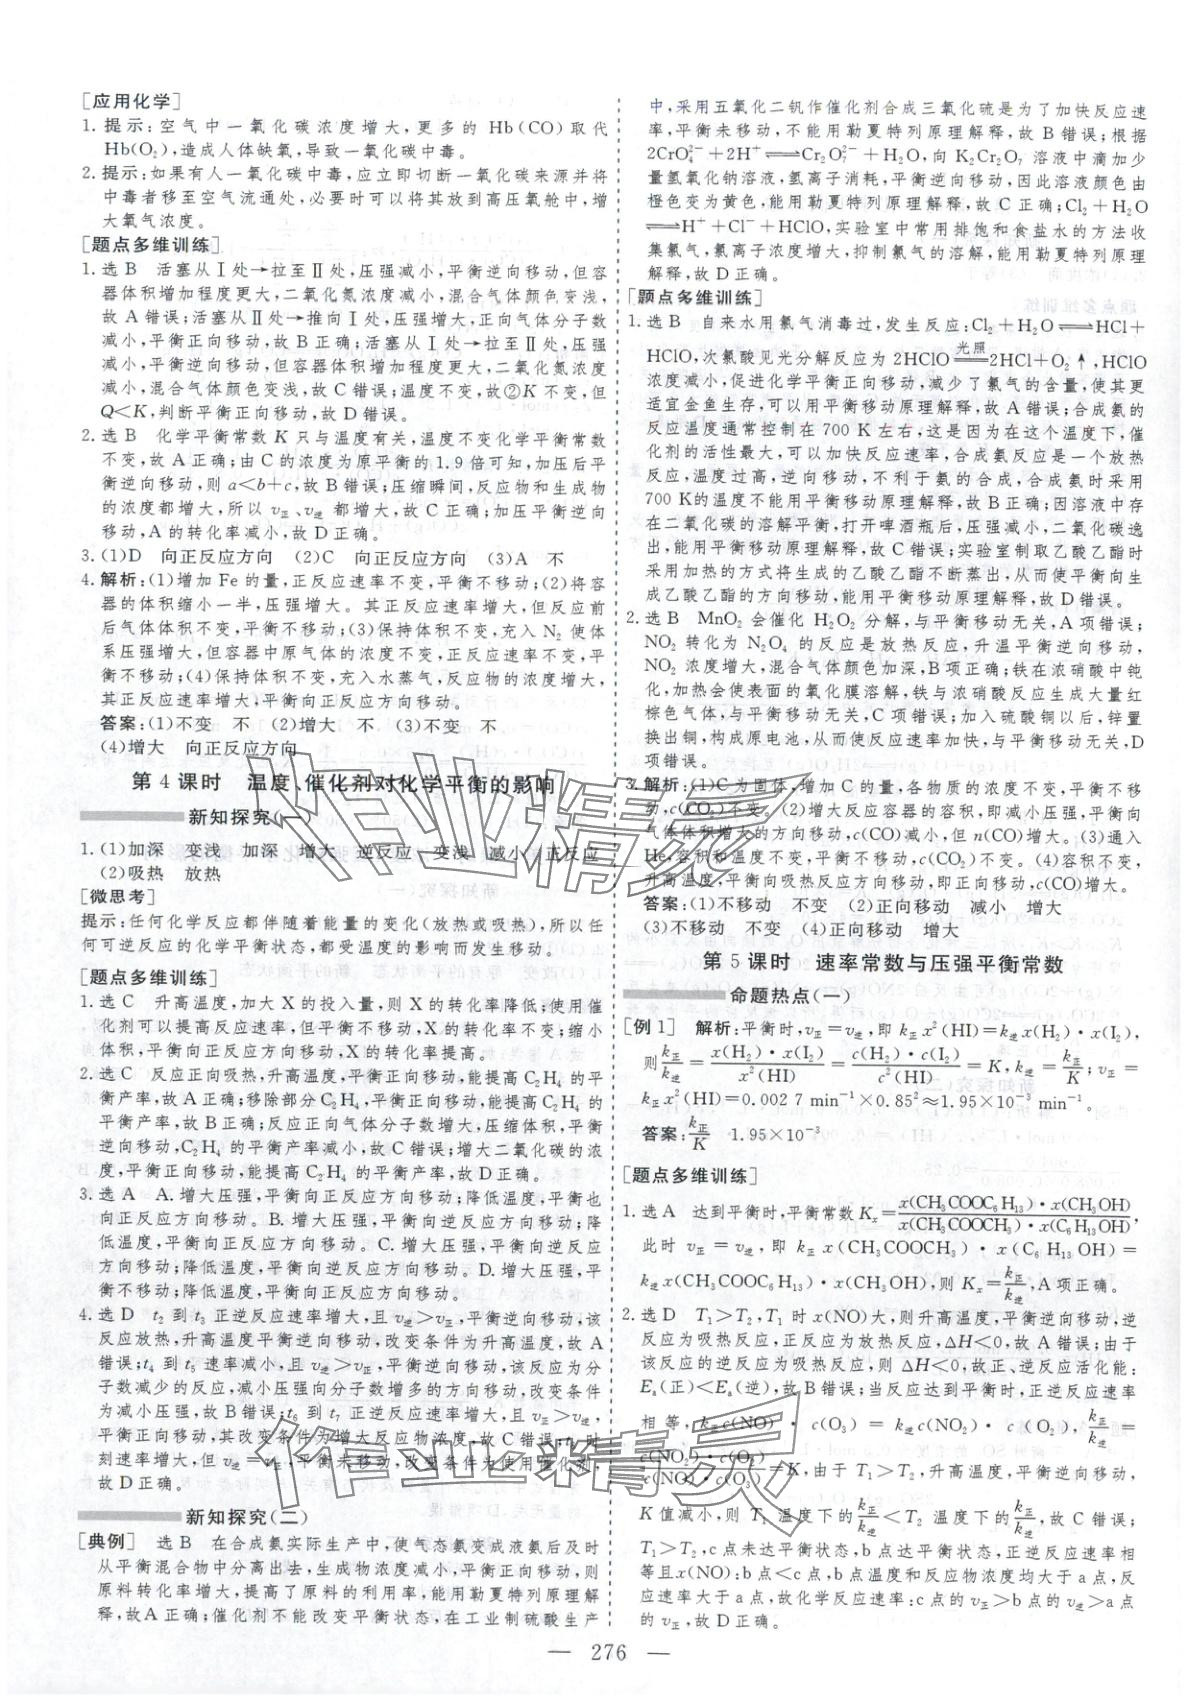 [应用化学]
1. 提示:空气中一氧化碳浓度增大,更多的 Hb(CO)取代
Hb(O₂),造成人体缺氧,导致一氧化碳中毒。
2. 提示:如果有人一氧化碳中毒,应立即切断一氧化碳来源并将
中毒者移至空气流通处,必要时可以将其放到高压氧舱中,增
大氧气浓度。
[题点多维训练]
1. 选 B 活塞从Ⅰ处→拉至Ⅱ处,压强减小,平衡逆向移动,但容
器体积增加程度更大,二氧化氮浓度减小,混合气体颜色变浅,
故 A 错误;活塞从Ⅱ处→推向Ⅰ处,压强增大,正向气体分子数
减小,平衡正向移动,故 B 正确;活塞从Ⅰ处→拉至Ⅱ处,压强
减小,平衡逆向移动,但容器体积增加程度更大,二氧化氮浓度
减小,混合气体颜色变浅,故 C 错误;温度不变,故②K 不变,但
Q<K,判断平衡正向移动,故 D 错误。
2. 选 B 化学平衡常数 K 只与温度有关,温度不变化学平衡常数
不变,故 A 正确;由 C 的浓度为原平衡的 1.9 倍可知,加压后平
衡逆向移动,则 a<b+c,故 B 错误;压缩瞬间,反应物和生成物
的浓度都增大,所以 v正、v逆 都增大,故 C 正确;加压平衡逆向
移动,A 的转化率减小,故 D 正确。
3. (1)D 向正反应方向 (2)C 向正反应方向 (3)A 不
4. 解析:(1)增加 Fe 的量,正反应速率不变,平衡不移动;(2)将容
器的体积缩小一半,压强增大。其正反应速率增大,但反应前
后气体体积不变,平衡不移动;(3)保持体积不变,充入 N₂ 使体
系压强增大,但容器中原气体的浓度不变,正反应速率不变,平
衡不移动;(4)保持体积不变,充入水蒸气,反应物的浓度增大,
其正反应速率增大,平衡向正反应方向移动。
答案:(1)不变 不 (2)增大 不 (3)不变 不
(4)增大 向正反应方向
第 4 课时 温度、催化剂对化学平衡的影响
新知探究(一)
1. (1)加深 变浅 加深 增大 逆反应 变浅 减小 正反应
(2)吸热 放热
[微思考]
提示:任何化学反应都伴随着能量的变化(放热或吸热),所以任
何可逆反应的化学平衡状态,都受温度的影响而发生移动。
[题点多维训练]
1. 选 C 升高温度,加大 X 的投入量,则 X 的转化率降低;使用催
化剂可以提高反应速率,但平衡不移动,X 的转化率不变;缩小
体积,平衡向正反应方向移动,X的转化率提高。
2. 选 C 反应正向吸热,升高温度,平衡正向移动,能提高 C₂H₄ 的平
衡产率,故 A 正确;移除部分 C₂H₄,平衡正向移动,能提高 C₂H₄ 的平
衡产率,故 B 正确;反应正向气体分子数增大,压缩体积,平衡
逆向移动,C₂H₄ 的平衡产率减小,故 C 错误;增大二氧化碳的浓
度,平衡正向移动,能提高 C₂H₄ 的平衡产率,故 D 正确。
3. 选 A A.增大压强,平衡向正反应方向移动;降低温度,平衡也
向正反应方向移动。B.增大压强,平衡向逆反应方向移动;降
低温度,平衡向正反应方向移动。C.增大压强,平衡向逆反应
方向移动;降低温度,平衡向逆反应方向移动。D.增大压强,平
衡不移动;降低温度,平衡向正反应方向移动。
4. 选 D t₂ 到 t₃ 正逆反应速率增大,且 v逆>v正,平衡逆向移动,该
反应放热,升高温度平衡逆向移动,改变条件为升高温度,故 A
错误;t₄ 到 t₅ 速率减小,且 v逆>v正,平衡逆向移动,该反应为分
子数减少的反应,减小压强向分子数增多的方向移动,改变条件
为减小压强,故 B 错误;t₆ 到 t₇ 正逆反应速率增大,且 v正>v逆,
平衡正向移动,其改变条件为增大反应物浓度,故 C 错误;t₈ 时
刻速率增大,但 v逆=v正,平衡未移动,改变条件为使用催化剂,
故 D 正确。
新知探究(二)
[典例] 选 B 在合成氨实际生产中,使气态氨变成液氨后及时
从平衡混合物中分离出去,生成物浓度减小,平衡正向移动,则
原料转化率增大,提高了原料的利用率,能用勒夏特列原理解
释,故 A 正确;催化剂不能改变平衡状态,在工业制硫酸生产
中,采用五氧化二钒作催化剂合成三氧化硫是为了加快反应速
率,平衡未移动,不能用勒夏特列原理解释,故 B 错误;根据
2CrO₄²⁻+2H⁺⇌Cr₂O₇²⁻+H₂O,向 K₂Cr₂O₇ 溶液中滴加少
量氢氧化钠溶液,氢离子消耗,平衡逆向移动,因此溶液颜色由
橙色变为黄色,能用勒夏特列原理解释,故 C 正确;Cl₂+H₂O
⇌H⁺+Cl⁻+HClO,实验室中常用排饱和食盐水的方法收
集氯气,氯离子浓度增大,抑制氯气的溶解,能用勒夏特列原理
解释,故 D 正确。
[题点多维训练]
1. 选 B 自来水用氯气消毒过,发生反应:Cl₂+H₂O⇌HCl+
HClO,次氯酸见光分解反应为 2HClO=光照=2HCl+O₂↑,HClO
浓度减小,促进化学平衡正向移动,减少了氯气的含量,使其更
适宜金鱼生存,可以用平衡移动原理解释,故 A 错误;合成氨的
反应温度通常控制在 700 K 左右,这是因为在这个温度下,催
化剂的活性最大,可以加快反应速率,合成氨反应是一个放热
反应,温度过高,逆向移动,不利于氨的合成,合成氨时采用
700 K的温度不能用平衡移动原理解释,故 B 正确;因溶液中存
在二氧化碳的溶解平衡,打开啤酒瓶后,压强减小,二氧化碳逸
出,能用平衡移动原理解释,故 C 错误;实验室制取乙酸乙酯时
采用加热的方式将生成的乙酸乙酯不断蒸出,从而使平衡向生
成乙酸乙酯的方向移动,能用平衡移动原理解释,故 D 错误。
2. 选 B MnO₂ 会催化 H₂O₂ 分解,与平衡移动无关,A 项错误;
NO₂ 转化为 N₂O₄ 的反应是放热反应,升温平衡逆向移动,
NO₂ 浓度增大,混合气体颜色加深,B 项正确;铁在浓硝酸中钝
化,加热会使表面的氧化膜溶解,铁与浓硝酸反应生成大量红
棕色气体,与平衡移动无关,C 项错误;加入硫酸铜以后,锌置
换出铜,构成原电池,从而使反应速率加快,与平衡移动无关,D
项错误。
3. 解析:(1)C 为固体,增加 C 的量,各物质的浓度不变,平衡不移
动,c(CO₂)不变。(2)增大反应容器的容积,即减小压强,平衡向
气体体积增大的方向移动,c(CO)减小,但 n(CO)增大。(3)通入
He,容积和温度不变,平衡不移动,c(CO₂)不变。(4)容积不变,
升高温度,平衡向吸热反应方向移动,即正向移动,c(CO)增大。
答案:(1)不移动 不变 (2)正向移动 减小 增大
(3)不移动 不变 (4)正向移动 增大
第 5 课时 速率常数与压强平衡常数
命题热点(一)
[例 1] 解析:平衡时,v正=v逆,即 k正x²(HI)=k逆x(H₂)·x(I₂),
则 k正/k逆=x(H₂)·x(I₂)/x²(HI)=c(H₂)·c(I₂)/c²(HI)=K,k逆=k正/K;v正=
k正x²(HI)=0.002 7 min⁻¹×0.85²≈1.95×10⁻³ min⁻¹。
答案:k正/K 1.95×10⁻³
[题点多维训练]
1. 选 A 达到平衡时,平衡常数 Kₓ=x(CH₃COOC₆H₁₃)·x(CH₃OH)/x(CH₃COOCH₃)·x(C₆H₁₃OH),
此时 v正=v逆,即 k正x(CH₃COOCH₃)·x(C₆H₁₃OH)=
k逆x(CH₃COOC₆H₁₃)·x(CH₃OH),则 Kₓ=k正/k逆,A 项正确。
2. 选 D T₁>T₂,T₁ 时 x(NO)大,则升高温度,平衡逆向移动,逆
反应为吸热反应,正反应为放热反应,ΔH<0,故 A 错误;由于
该反应的逆反应为吸热反应,则 ΔH<0,故正、逆反应活化能:
Eₐ(正)<Eₐ(逆),故 B 错误;当反应达到平衡时,正逆反应速率
相等,k正c(NO)·c(O₃)=k逆c(NO₂)·c(O₂),k正/k逆=
c(NO₂)·c(O₂)/c(NO)·c(O₃)=K,由于 T₁>T₂,升高温度,平衡逆向移动,
K 值减小,则 T₁ 温度下的 k正/k逆<T₂ 温度下的 k正/k逆,故 C 错误;
T₁>T₂,c 点未达平衡状态,b 点达平衡状态,正逆反应速率相
等且x(NO):b 点<c 点,b 点温度和反应物浓度均大于a 点,反
应速率大于a 点,故化学反应速率:c点的 v正>b点的 v逆>a点
的 v正,故 D 正确。
— 276 —
作业精灵
作业精灵